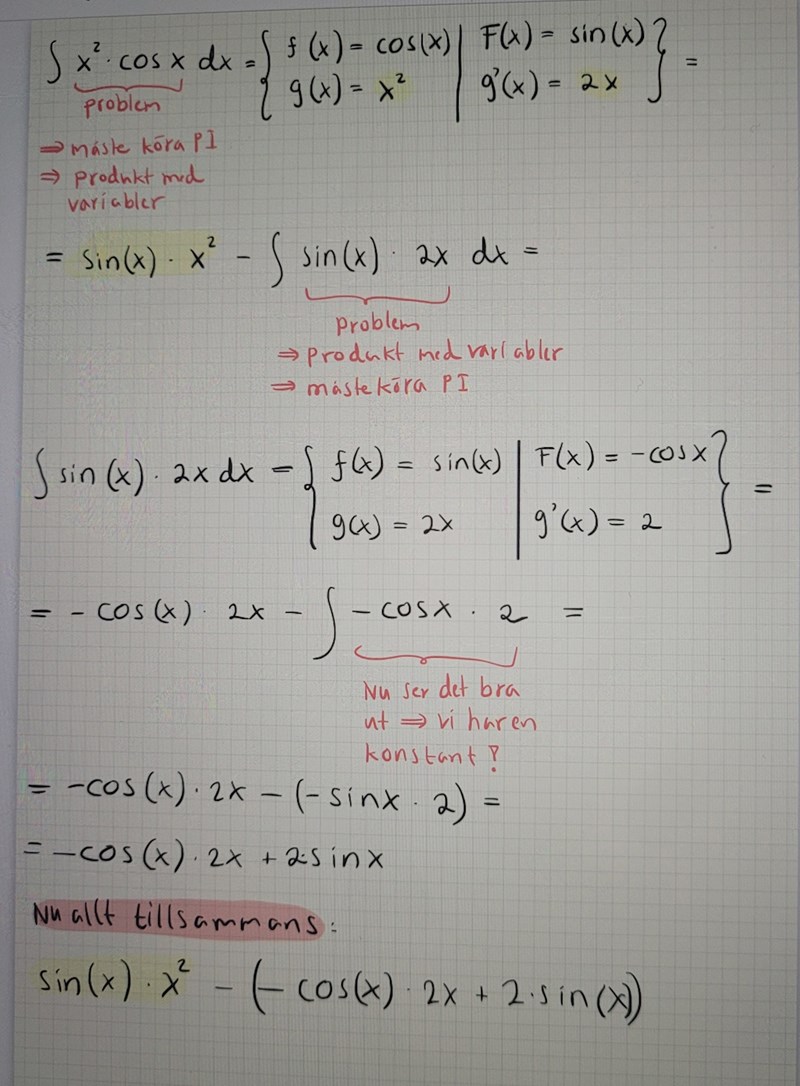 ∫ x² · cos x dx = { f(x) = cos(x) | F(x) = sin(x) } =
g(x) = x² | g'(x) = 2x
problem
⇒ måste köra PI
⇒ produkt med
variabler
= sin(x) · x² - ∫ sin(x) · 2x dx =
problem
⇒ produkt med variabler
⇒ måste köra PI
∫ sin(x) · 2x dx = { f(x) = sin(x) | F(x) = -cos x } =
g(x) = 2x | g'(x) = 2
= - cos(x) · 2x - ∫ - cos x · 2 =
Nu ser det bra
ut ⇒ vi har en
konstant?
= -cos(x) · 2x - (- sin x · 2) =
= -cos(x) · 2x + 2·sin x
Nu allt tillsammans:
sin(x) · x² - (- cos(x) · 2x + 2·sin(x))